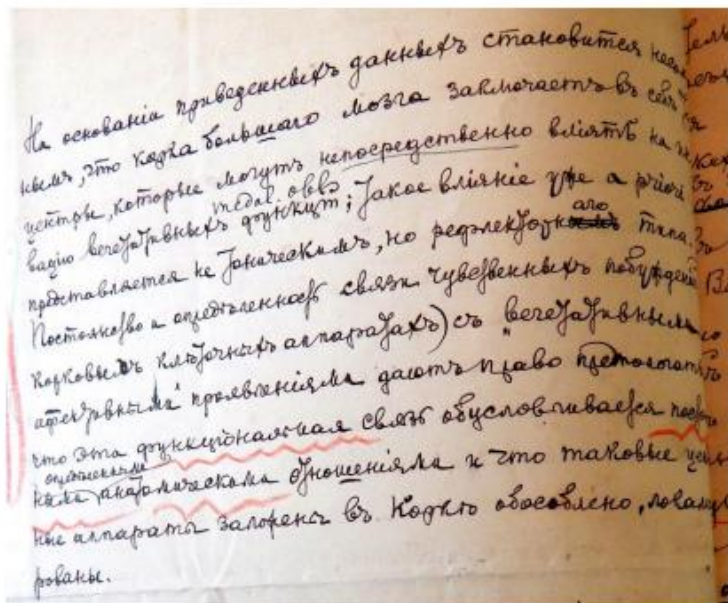 На основаніи приведенныхъ данныхъ становится
нымъ, что корка большаго мозга заключаетъ въ себѣ
центры, которые могутъ непосредственно вліять на
вацію вегетативныхъ функцій; Такое вліяніе уже a priori
представляется не тоническимъ, но рефлекторнаго типа.
Постоянство и опредѣленность связи чувственныхъ побужденій
корковымъ клѣточныхъ аппаратахъ) съ вегетативными
афективными проявленіями даютъ право предполагать
что эта функціональная связь обусловливается
опредѣленными
ными анатомическими отношеніями и что таковые
ные аппараты заложены въ Коркѣ обособлено,
рованы.